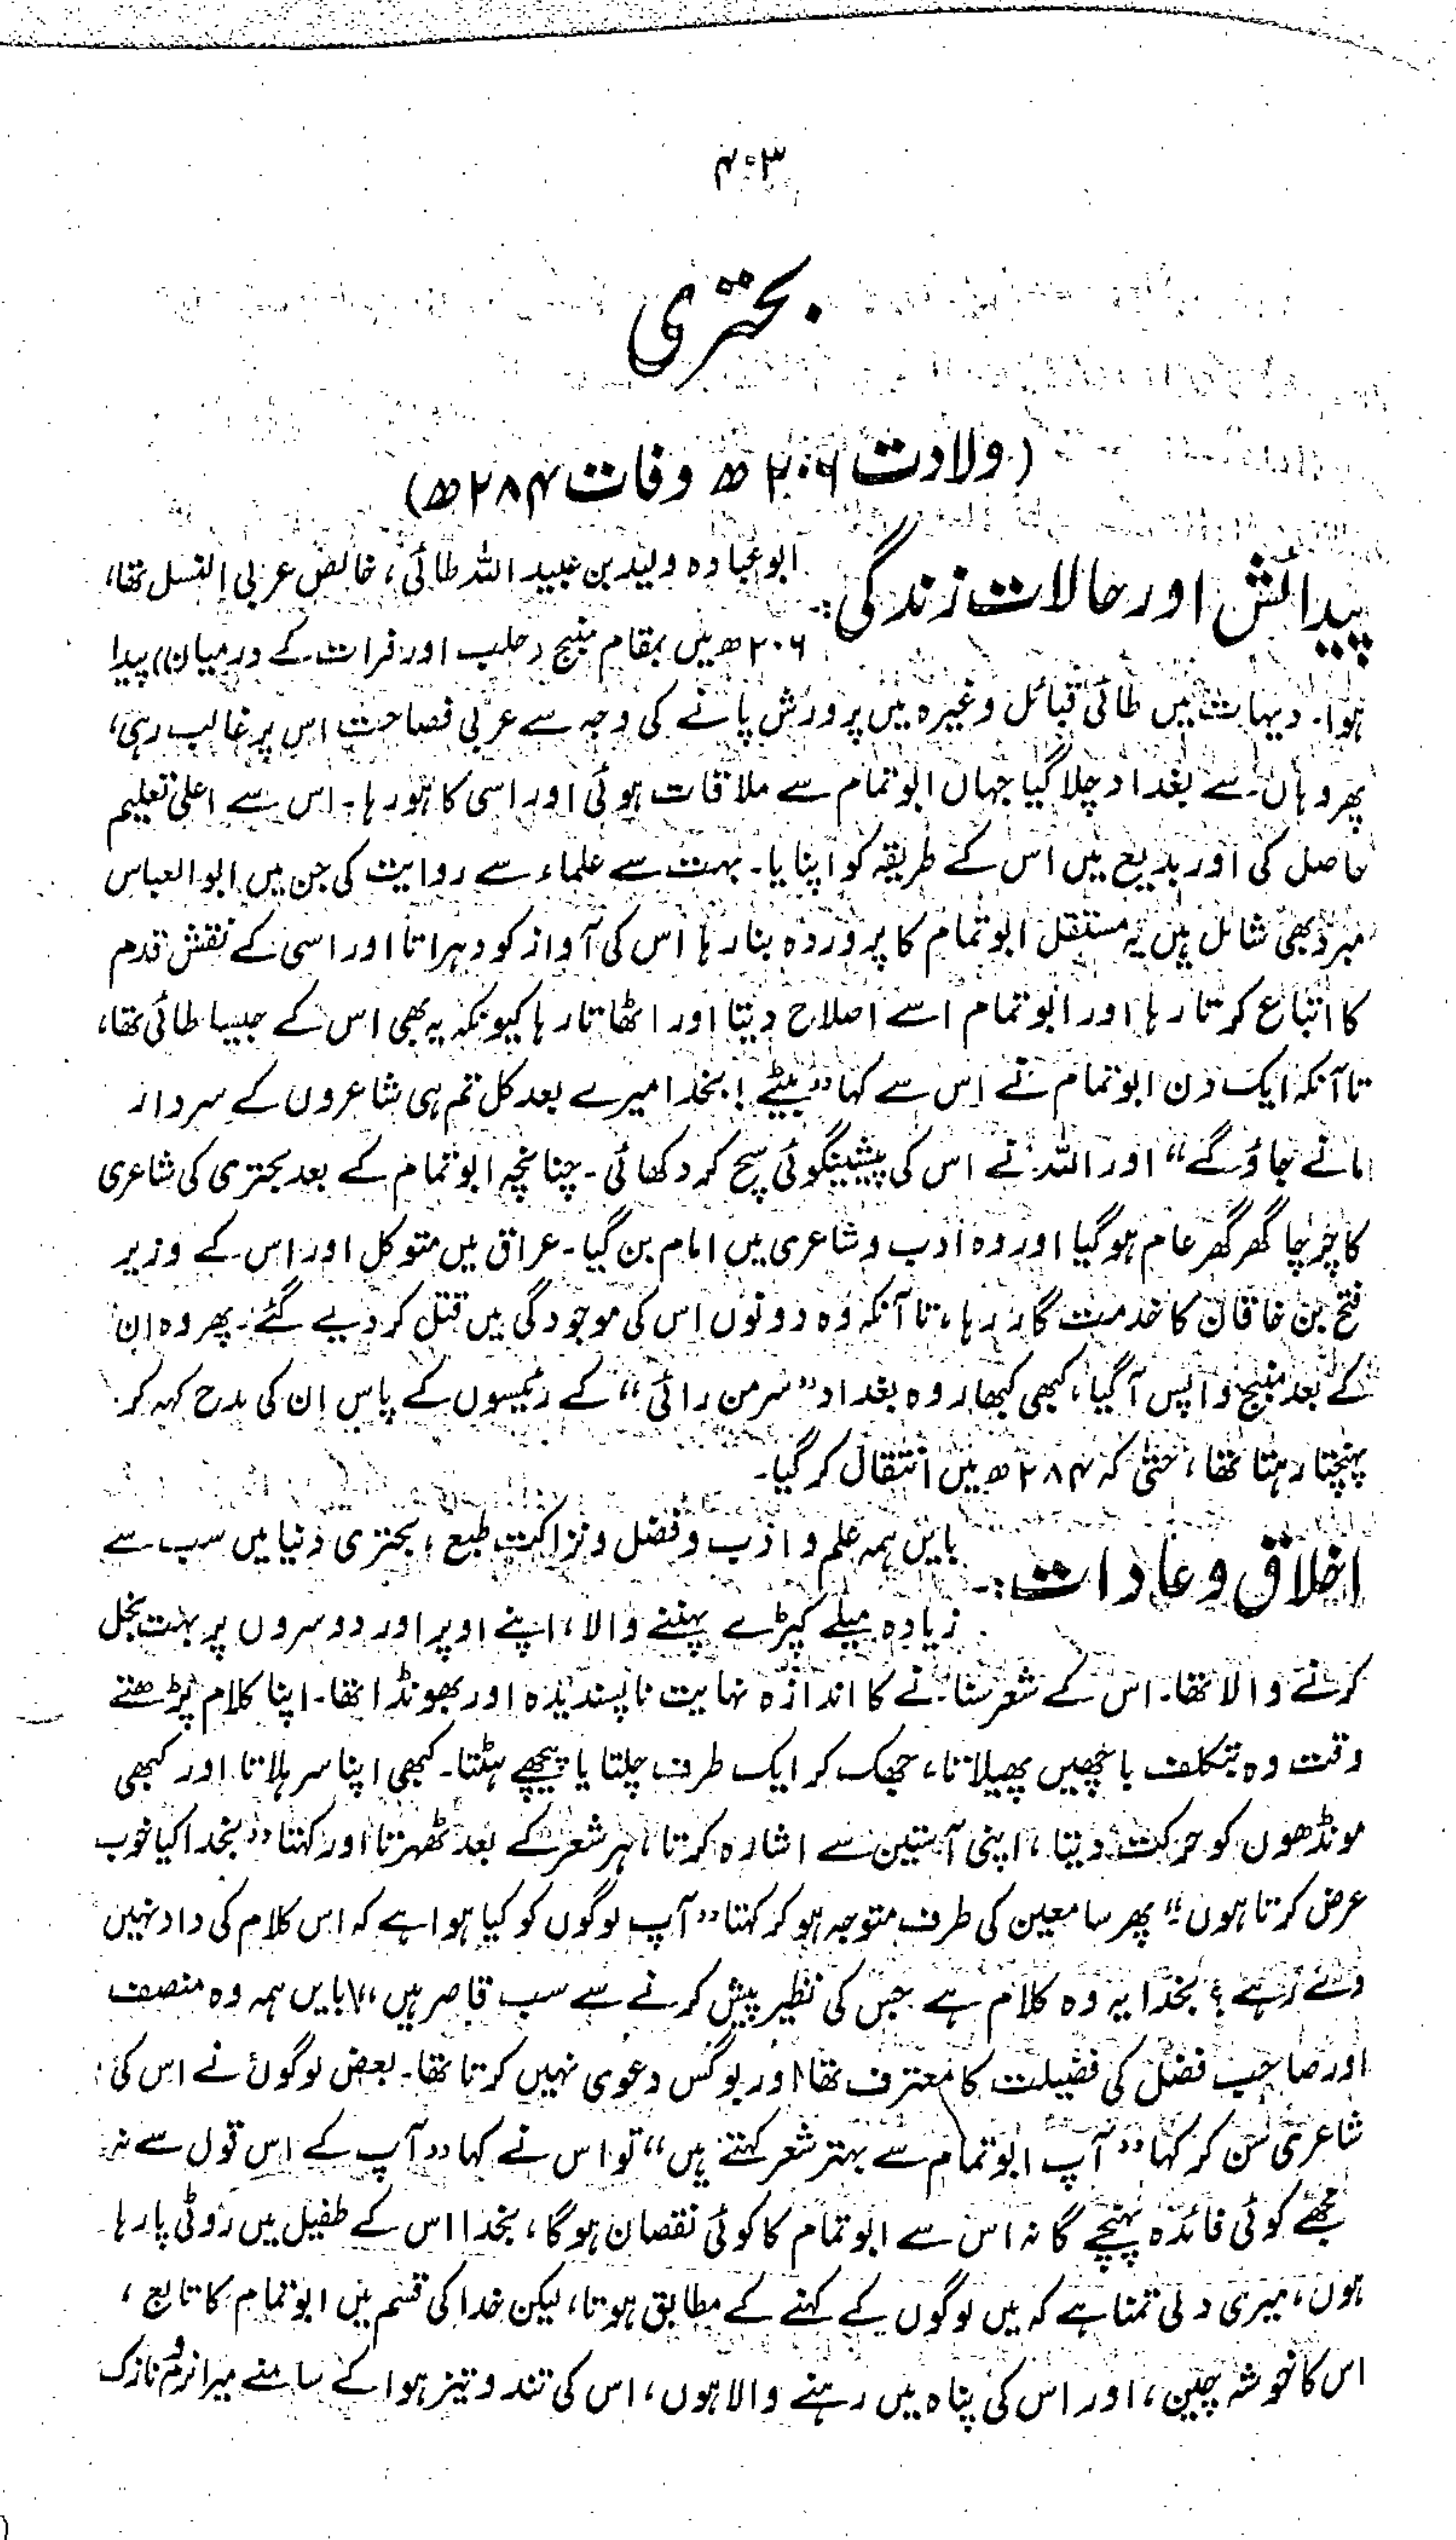 ۴۰۳
بحتری
(ولادت ۲۰۶ھ وفات ۲۸۴ھ)
پیدائش اور حالات زندگی:۔ ابوعبادہ ولید بن عبید اللہ طائی، خالص عربی النسل تھا،
۲۰۶ھ میں بمقام منبج (حلب اور فرات کے درمیان) پیدا
ہوا۔ دیہات میں طائی قبائل وغیرہ میں پرورش پانے کی وجہ سے عربی فصاحت اس پر غالب رہی،
پھر وہاں سے بغداد چلا گیا جہاں ابوتمام سے ملاقات ہوئی اور اسی کا ہو رہا۔ اس سے اعلیٰ تعلیم
حاصل کی اور بدیع میں اس کے طریقہ کو اپنایا۔ بہت سے علماء سے روایت کی جن میں ابوالعباس
مبرد بھی شامل ہیں یہ مستقل ابوتمام کا پروردہ بنا رہا اس کی آواز کو دہراتا اور اسی کے نقش قدم
کا اتباع کرتا رہا اور ابوتمام اسے اصلاح دیتا اور اٹھاتا رہا کیونکہ یہ بھی اس کے جیسا طائی تھا،
تا آنکہ ایک دن ابوتمام نے اس سے کہا ”بیٹے! بخدا میرے بعد کل تم ہی شاعروں کے سردار
مانے جاؤ گے“ اور اللہ نے اس کی پیشینگوئی سچ کر دکھائی۔ چنانچہ ابوتمام کے بعد بحتری کی شاعری
کا چرچا گھر گھر عام ہو گیا اور وہ ادب و شاعری میں امام بن گیا۔ عراق میں متوکل اور اس کے وزیر
فتح بن خاقان کا خدمت گار رہا، تا آنکہ وہ دونوں اس کی موجودگی میں قتل کر دیے گئے۔ پھر وہ ان
کے بعد منبج واپس آ گیا، کبھی کبھار وہ بغداد ”سرمن رائی“ کے رئیسوں کے پاس ان کی مدح کہہ کر
پہنچتا رہتا تھا، حتیٰ کہ ۲۸۴ھ میں انتقال کر گیا۔
اخلاق و عادات:۔ بایں ہمہ علم و ادب و فضل و نزاکت طبع، بحتری دنیا میں سب سے
زیادہ میلے کپڑے پہننے والا، اپنے اوپر اور دوسروں پر بہت بخل
کرنے والا تھا۔ اس کے شعر سنانے کا اندازہ نہایت ناپسندیدہ اور بھونڈا تھا۔ اپنا کلام پڑھتے
وقت وہ بتکلف باچھیں پھیلاتا، جھک کر ایک طرف چلتا یا پیچھے ہٹتا۔ کبھی اپنا سر ہلاتا اور کبھی
مونڈھوں کو حرکت دیتا، اپنی آستین سے اشارہ کرتا، ہر شعر کے بعد ٹھہرتا اور کہتا ”بخدا کیا خوب
عرض کرتا ہوں“ پھر سامعین کی طرف متوجہ ہو کر کہتا ”آپ لوگوں کو کیا ہوا ہے کہ اس کلام کی داد نہیں
دے رہے؟ بخدا یہ وہ کلام ہے جس کی نظیر پیش کرنے سے سب قاصر ہیں“ بایں ہمہ وہ منصف
اور صاحب فضل کی فضیلت کا معترف تھا اور بوگس دعوی نہیں کرتا تھا۔ بعض لوگوں نے اس کی
شاعری سن کر کہا ”آپ ابوتمام سے بہتر شعر کہتے ہیں“ تو اس نے کہا ”آپ کے اس قول سے نہ
مجھے کوئی فائدہ پہنچے گا نہ اس سے ابوتمام کا کوئی نقصان ہوگا، بخدا اس کے طفیل میں روٹی پا رہا
ہوں، میری دلی تمنا ہے کہ میں لوگوں کے کہنے کے مطابق ہوتا، لیکن خدا کی قسم میں ابوتمام کا تابع،
اس کا خوشہ چین، اور اس کی پناہ میں رہنے والا ہوں، اس کی تند و تیز ہوا کے سامنے میرا نرم و نازک